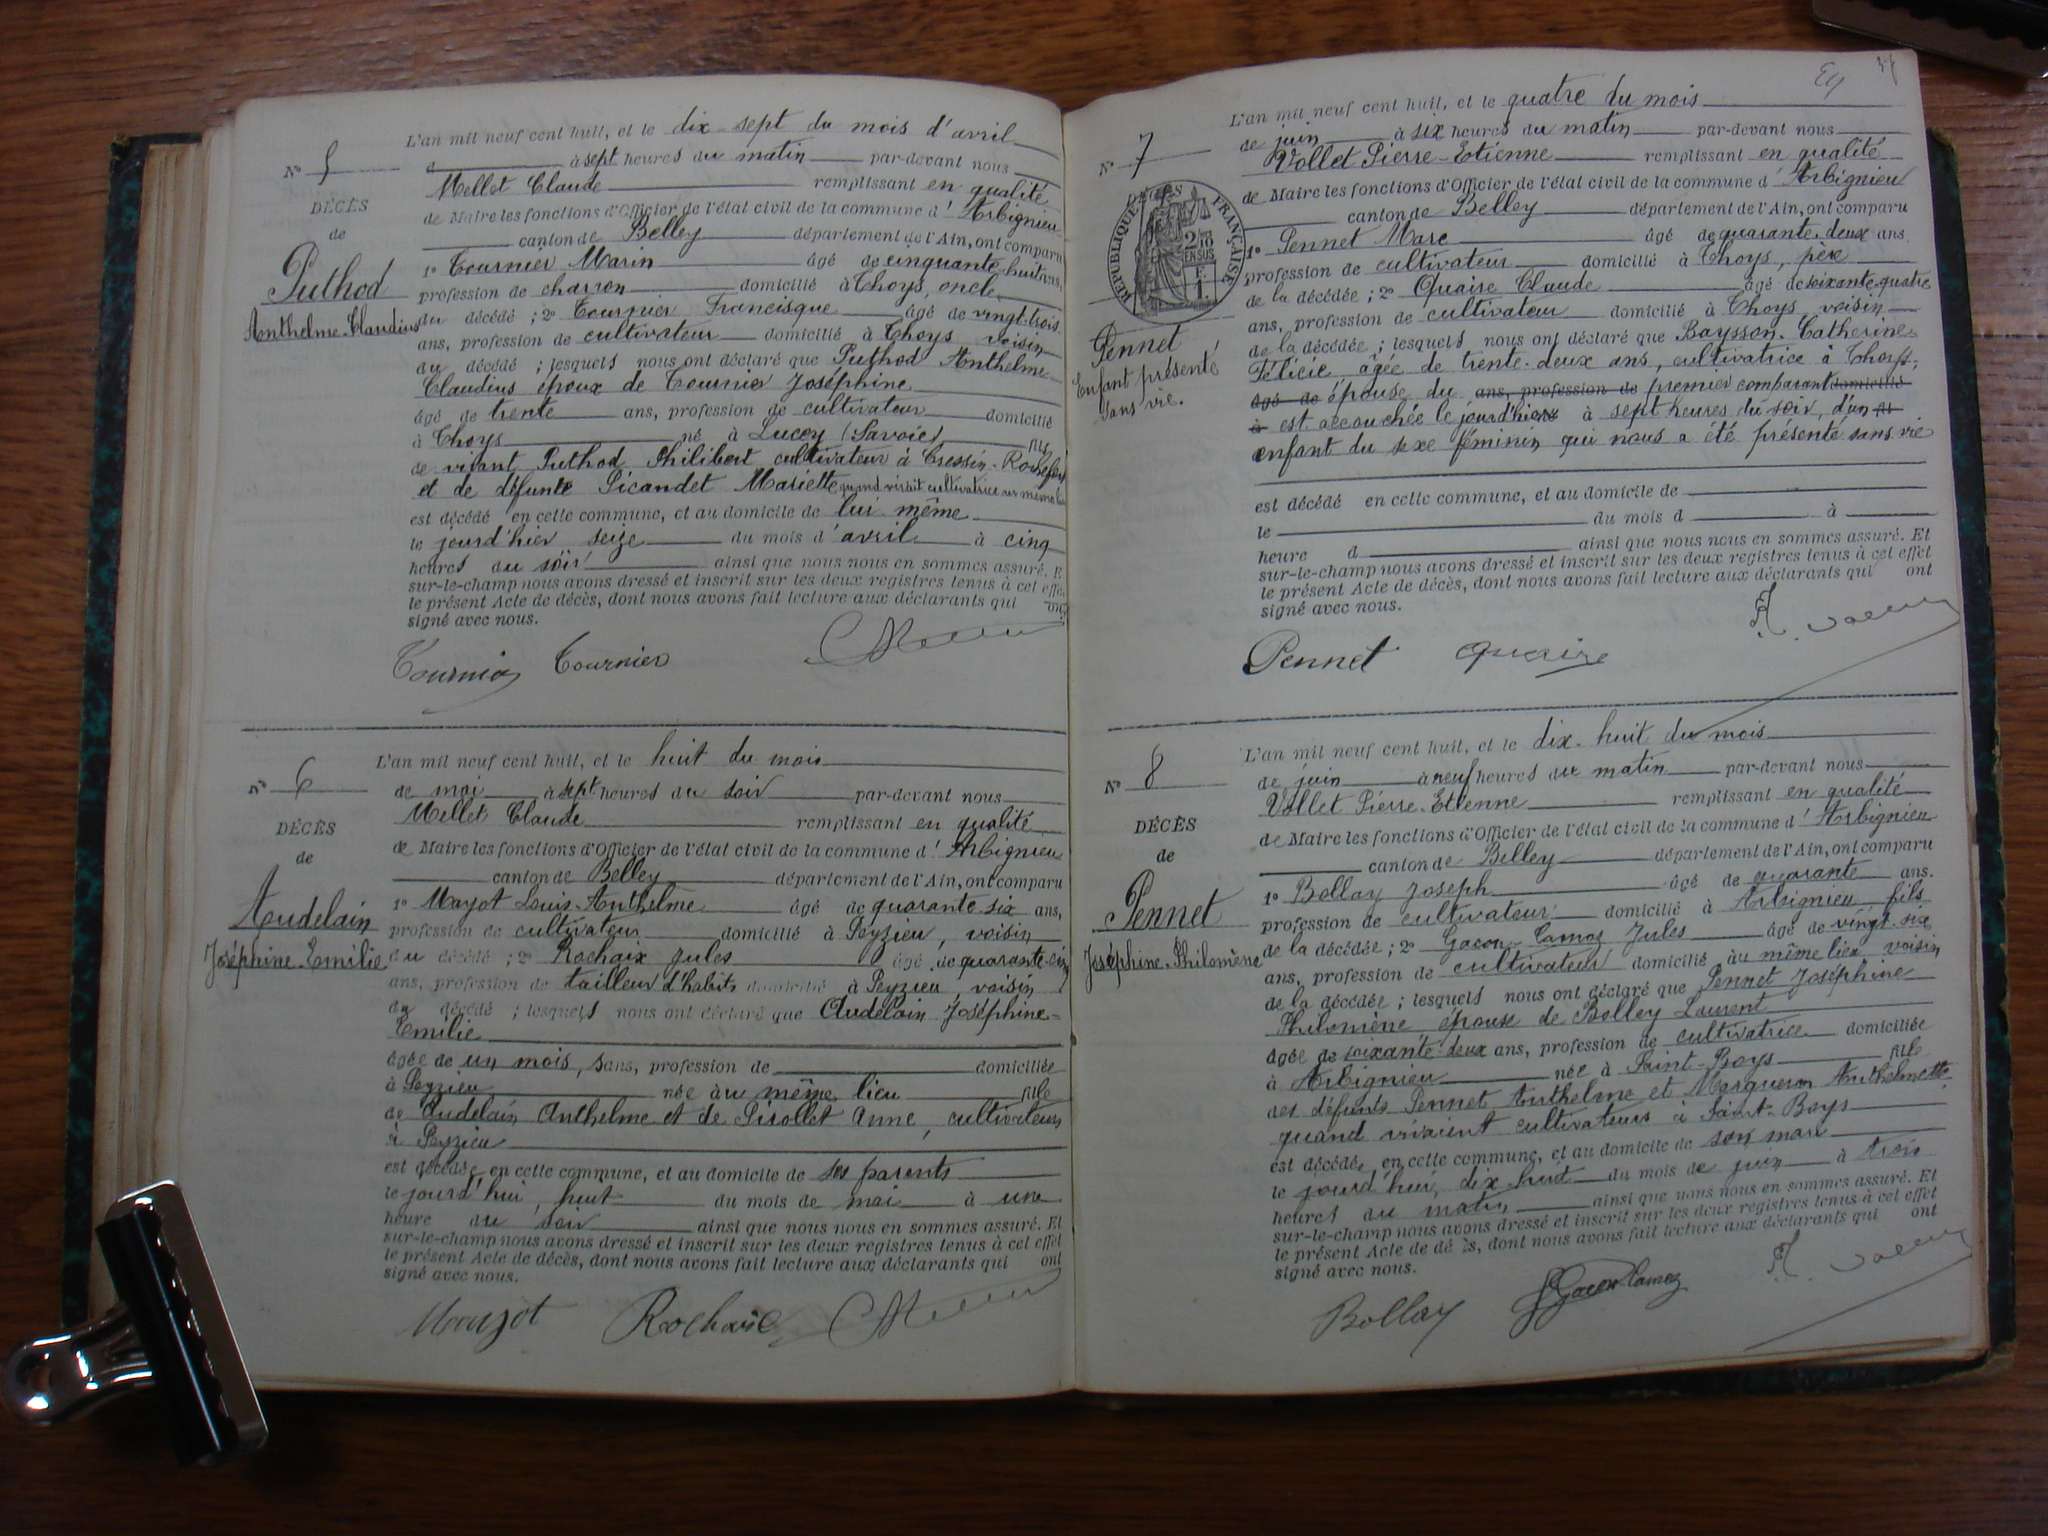 L'an mil neuf cent huit, et le dix-sept du mois d'avril
N° 5
à sept heures du matin par-devant nous
Mellet Claude remplissant en qualité
DÉCÈS
de Maire les fonctions d'Officier de l'état civil de la commune d'Arbignieu
de
canton de Belley département de l'Ain, ont comparu
Puthod
1° Tournier Marin âgé de cinquante-huit ans,
profession de charron domicilié à Thoys, oncle
Anthelme-Claudius
du décédé ; 2° Tournier Francisque âgé de vingt-trois
ans, profession de cultivateur domicilié à Thoys, voisin
du décédé ; lesquels nous ont déclaré que Puthod Anthelme
Claudius époux de Tournier Joséphine
âgé de trente ans, profession de cultivateur domicilié
à Thoys né à Lucey (Savoie) fils
de vivant Puthod Philibert cultivateur à Cressin-Rochefort
et de défunte Picandet Mariette quand vivait cultivatrice au même lieu
est décédé en cette commune, et au domicile de lui-même
le jourd'hier seize du mois d'avril à cinq
heures du soir ainsi que nous nous en sommes assuré. Et
sur-le-champ nous avons dressé et inscrit sur les deux registres tenus à cet effet
le présent Acte de décès, dont nous avons fait lecture aux déclarants qui ont
signé avec nous.
Tournier Tournier
L'an mil neuf cent huit, et le huit du mois
N° 6
de mai à sept heures du soir par-devant nous
Mellet Claude remplissant en qualité
DÉCÈS
de Maire les fonctions d'Officier de l'état civil de la commune d'Arbignieu
de
canton de Belley département de l'Ain, ont comparu
Audelain
1° Mayot Louis-Anthelme âgé de quarante-six ans,
profession de cultivateur domicilié à Peyzieu, voisin
Joséphine-Emilie
du décédé ; 2° Rochaix Jules âgé de quarante-cinq
ans, profession de tailleur d'habits domicilié à Peyzieu, voisin
du décédé ; lesquels nous ont déclaré que Audelain Joséphine-
Emilie
âgée de un mois, sans, profession de domiciliée
à Peyzieu née au même lieu fille
de Audelain Anthelme et de Pirollet Anne, cultivateurs
à Peyzieu
est décédée en cette commune, et au domicile de ses parents
le jourd'hui, huit du mois de mai à une
heure du soir ainsi que nous nous en sommes assuré. Et
sur-le-champ nous avons dressé et inscrit sur les deux registres tenus à cet effet
le présent Acte de décès, dont nous avons fait lecture aux déclarants qui ont
signé avec nous.
Rochaix
37
L'an mil neuf cent huit, et le quatre du mois
N° 7
de juin à six heures du matin par-devant nous
Vollet Pierre-Etienne remplissant en qualité
DÉCÈS
RÉPUBLIQUE FRANÇAISE
2/10 EN SUS
1 F.
de Maire les fonctions d'Officier de l'état civil de la commune d'Arbignieu
canton de Belley département de l'Ain, ont comparu
1° Pennet Marc âgé de quarante-deux ans
profession de cultivateur domicilié à Thoys, père
de la décédée ; 2° Quaire Claude âgé de soixante-quatre
ans, profession de cultivateur domicilié à Thoys, voisin
Pennet
Enfant présenté
sans vie.
de la décédée ; lesquels nous ont déclaré que Baysson Catherine
Félicie, âgée de trente-deux ans, cultivatrice à Thoys,
âgé de épouse du ans, profession de premier comparant domicilié
à est accouchée le jourd'hier à sept heures du soir, d'un
enfant du sexe féminin qui nous a été présenté sans vie
est décédé en cette commune, et au domicile de
le du mois d à
heure d ainsi que nous nous en sommes assuré. Et
sur-le-champ nous avons dressé et inscrit sur les deux registres tenus à cet effet
le présent Acte de décès, dont nous avons fait lecture aux déclarants qui ont
signé avec nous.
Pennet Quaire
L'an mil neuf cent huit, et le dix-huit du mois
N° 8
de juin à neuf heures du matin par-devant nous
Vollet Pierre-Etienne remplissant en qualité
DÉCÈS
de Maire les fonctions d'Officier de l'état civil de la commune d'Arbignieu
de
canton de Belley département de l'Ain, ont comparu
Pennet
1° Bollay Joseph âgé de quarante ans.
profession de cultivateur domicilié à Arbignieu fils
Joséphine-Philomène
de la décédée ; 2° Gacon-Camoz Jules âgé de vingt-six
ans, profession de cultivateur domicilié au même lieu voisin
de la décédée ; lesquels nous ont déclaré que Pennet Joséphine
Philomène épouse de Bolley Laurent
âgée de soixante-deux ans, profession de cultivatrice domiciliée
à Arbignieu née à Saint-Boys fille
des défunts Pennet Anthelme et Marguerin Anthelmette
quand vivaient cultivateurs à Saint-Boys
est décédée en cette commune, et au domicile de son mari
le jourd'hui, dix-huit du mois de juin à trois
heures du matin ainsi que nous nous en sommes assuré. Et
sur-le-champ nous avons dressé et inscrit sur les deux registres tenus à cet effet
le présent Acte de décès, dont nous avons fait lecture aux déclarants qui ont
signé avec nous.
Bollay Gacon Camoz